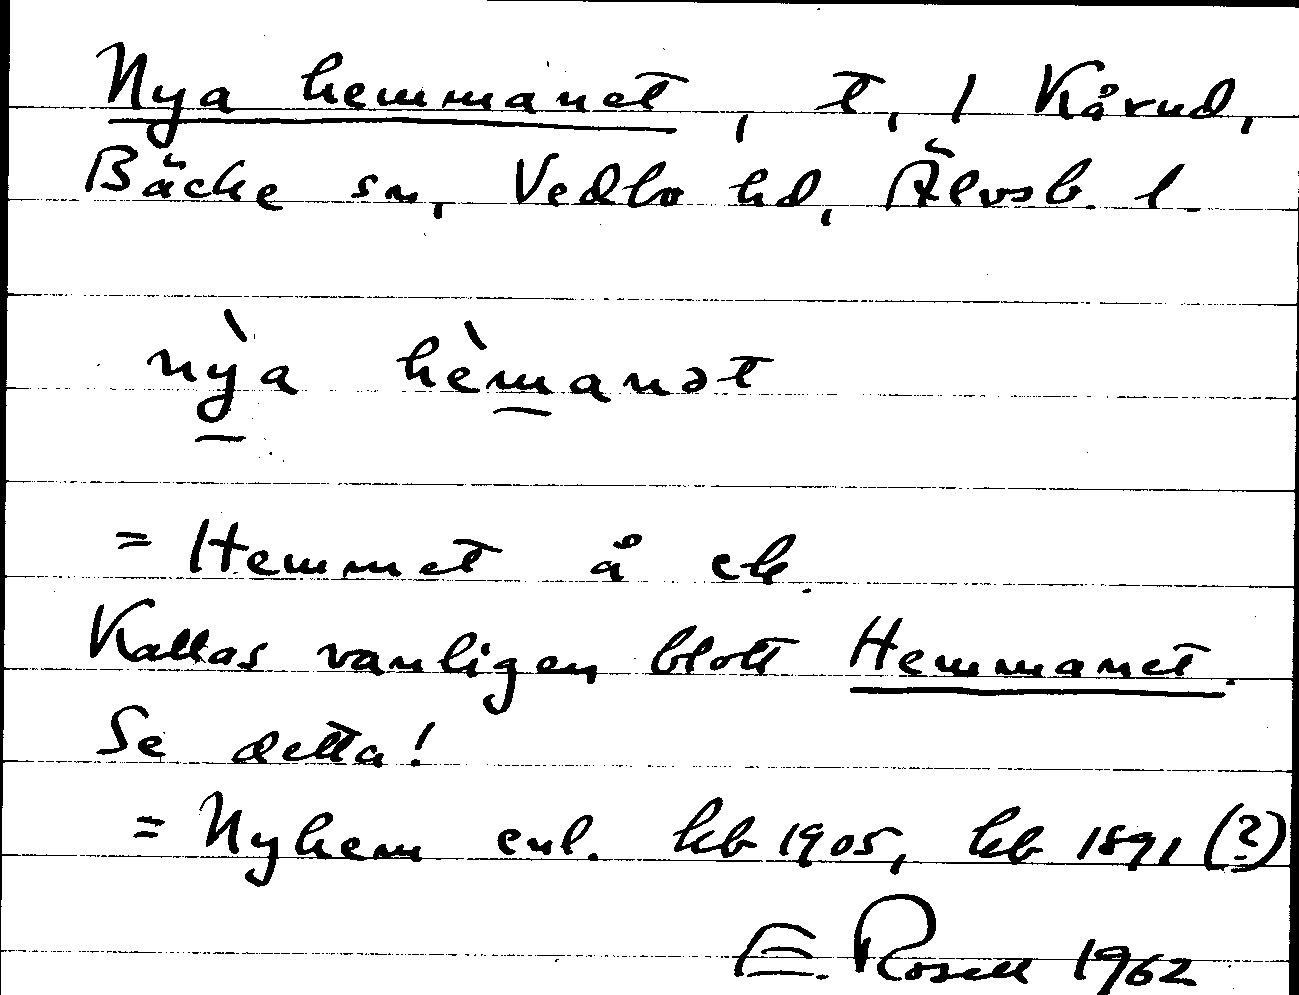 Nya hemmanet, t, 1 Kårud,
Bäcke sn, Vedbo hd, Älvsb. l.
nỳa hèmanət
= Hemmet å ek.
Kallas vanligen blott Hemmanet.
Se detta!
= Nyhem enl. kb 1905, kb 1891 (?)
E. Rosell 1962